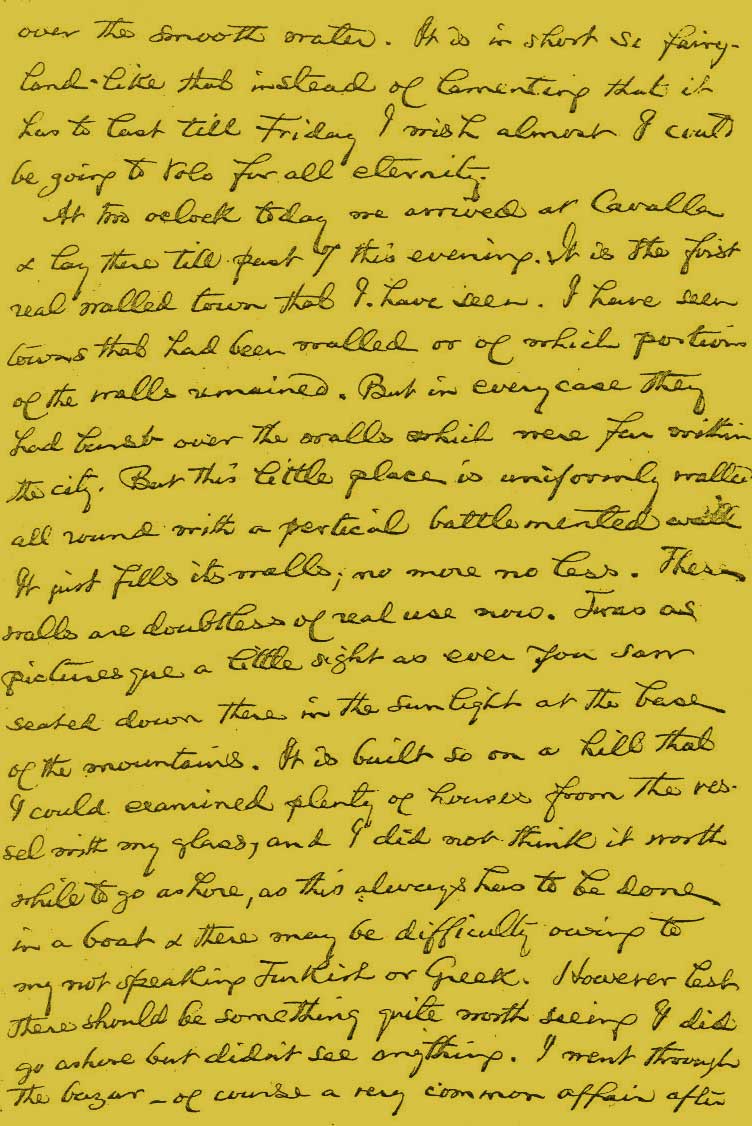 over the smooth water. It is in short so fairy-
land-like that instead of lamenting that it
has to last till Friday I wish almost I could
be going to Volo for all eternity.
At two oclock today we arrived at Cavalla
& lay there till past 7 this evening. It is the first
real walled town that I have seen. I have seen
towns that had been walled or of which portions
of the walls remained. But in every case they
had burst over the walls which were far within
the city. But this little place is uniformly walled
all round with a vertical battlemented wall
It just fills its walls; no more no less. These
walls are doubtless of real use now. Twas as
picturesque a little sight as ever you saw
seated down there in the sunlight at the base
of the mountains. It is built so on a hill that
I could examined plenty of houses from the ves-
sel with my glass, and I did not think it worth
while to go ashore, as this always has to be done
in a boat & there may be difficulty owing to
my not speaking Turkish or Greek. However lest
there should be something quite worth seeing I did
go ashore but didn't see anything. I went through
the bazar – of course a very common affair after